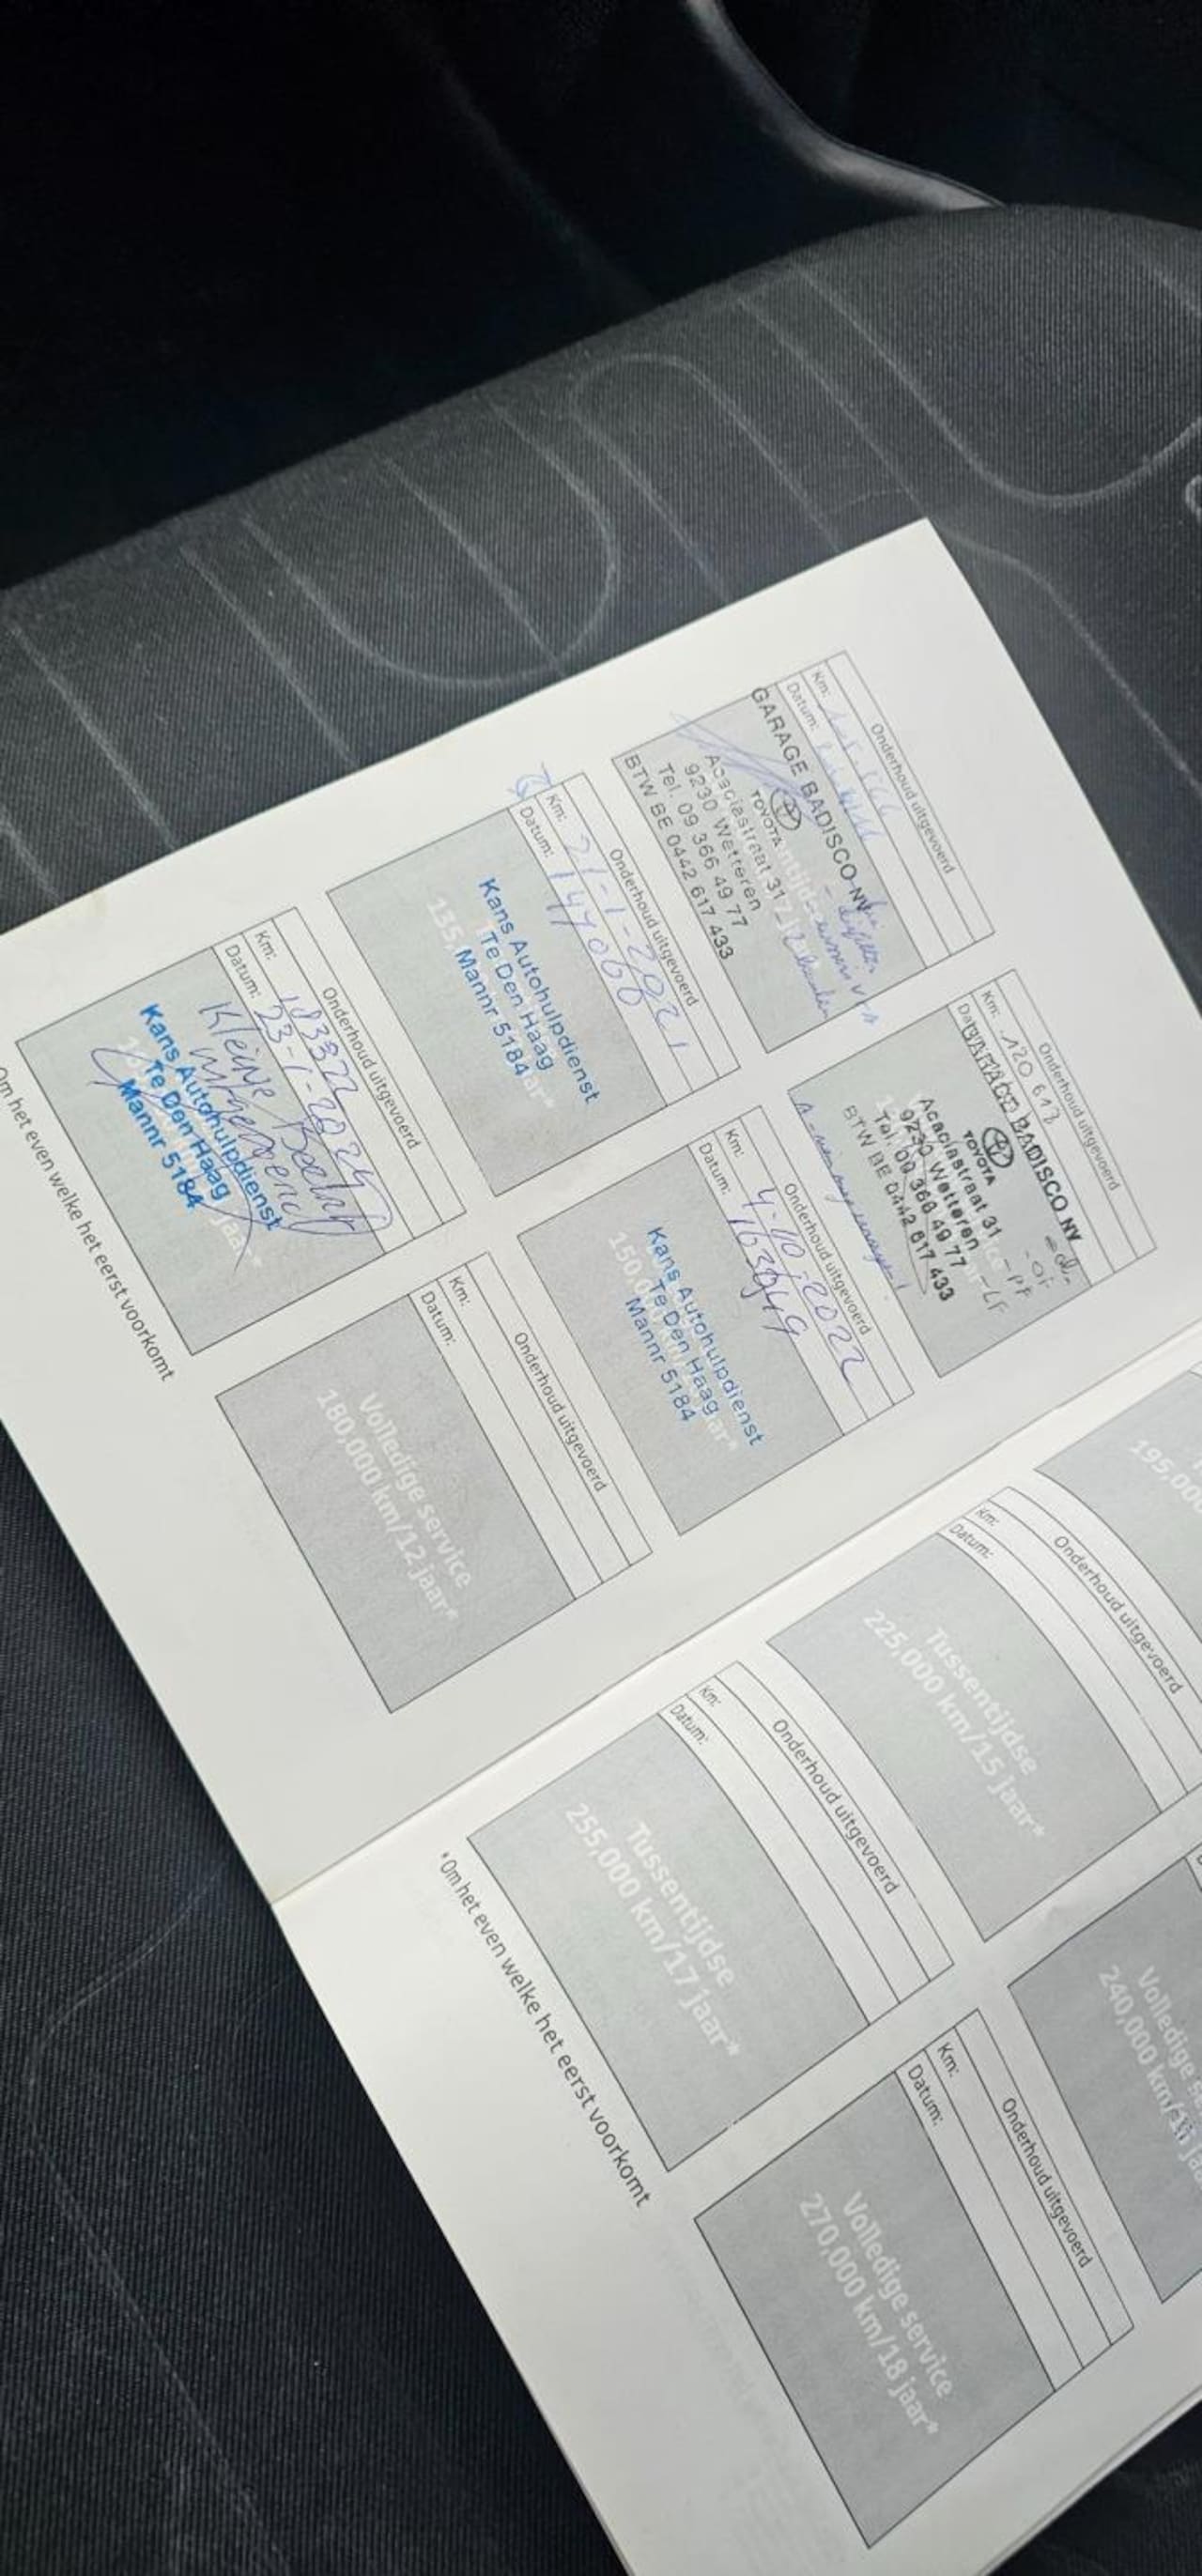 Onderhoud uitgevoerd
Km:
Datum:
GARAGE BADISCO NV
TOYOTA
Acaciastraat 31
9230 Wetteren
Tel. 09 366 49 77
BTW BE 0442 617 433
Onderhoud uitgevoerd
Km: 120 613
GARAGE BADISCO NV
TOYOTA
Acaciastraat 31
9230 Wetteren
Tel. 09 366 49 77
BTW BE 0442 617 433
Onderhoud uitgevoerd
Km: 21-1-2021
Datum: 147066
Kans Autohulpdienst
Te Den Haag
Mannr 5184
Onderhoud uitgevoerd
Km: 4-10-2022
Datum: 163949
Kans Autohulpdienst
Te Den Haag
Mannr 5184
Onderhoud uitgevoerd
Km:
Datum: 23-1-2025
Kleine Beurt
Kans Autohulpdienst
Te Den Haag
Mannr 5184
Onderhoud uitgevoerd
Km:
Datum:
Volledige service
180,000 km/12 jaar*
Om het even welke het eerst voorkomt
195,00
Onderhoud uitgevoerd
Km:
Datum:
Tussentijdse
225,000 km/15 jaar*
Volledige s
240,000 km/16 ja
Onderhoud uitgevoerd
Km:
Datum:
Tussentijdse
255,000 km/17 jaar*
Onderhoud uitgevoerd
Km:
Datum:
Volledige service
270,000 km/18 jaar*
*Om het even welke het eerst voorkomt